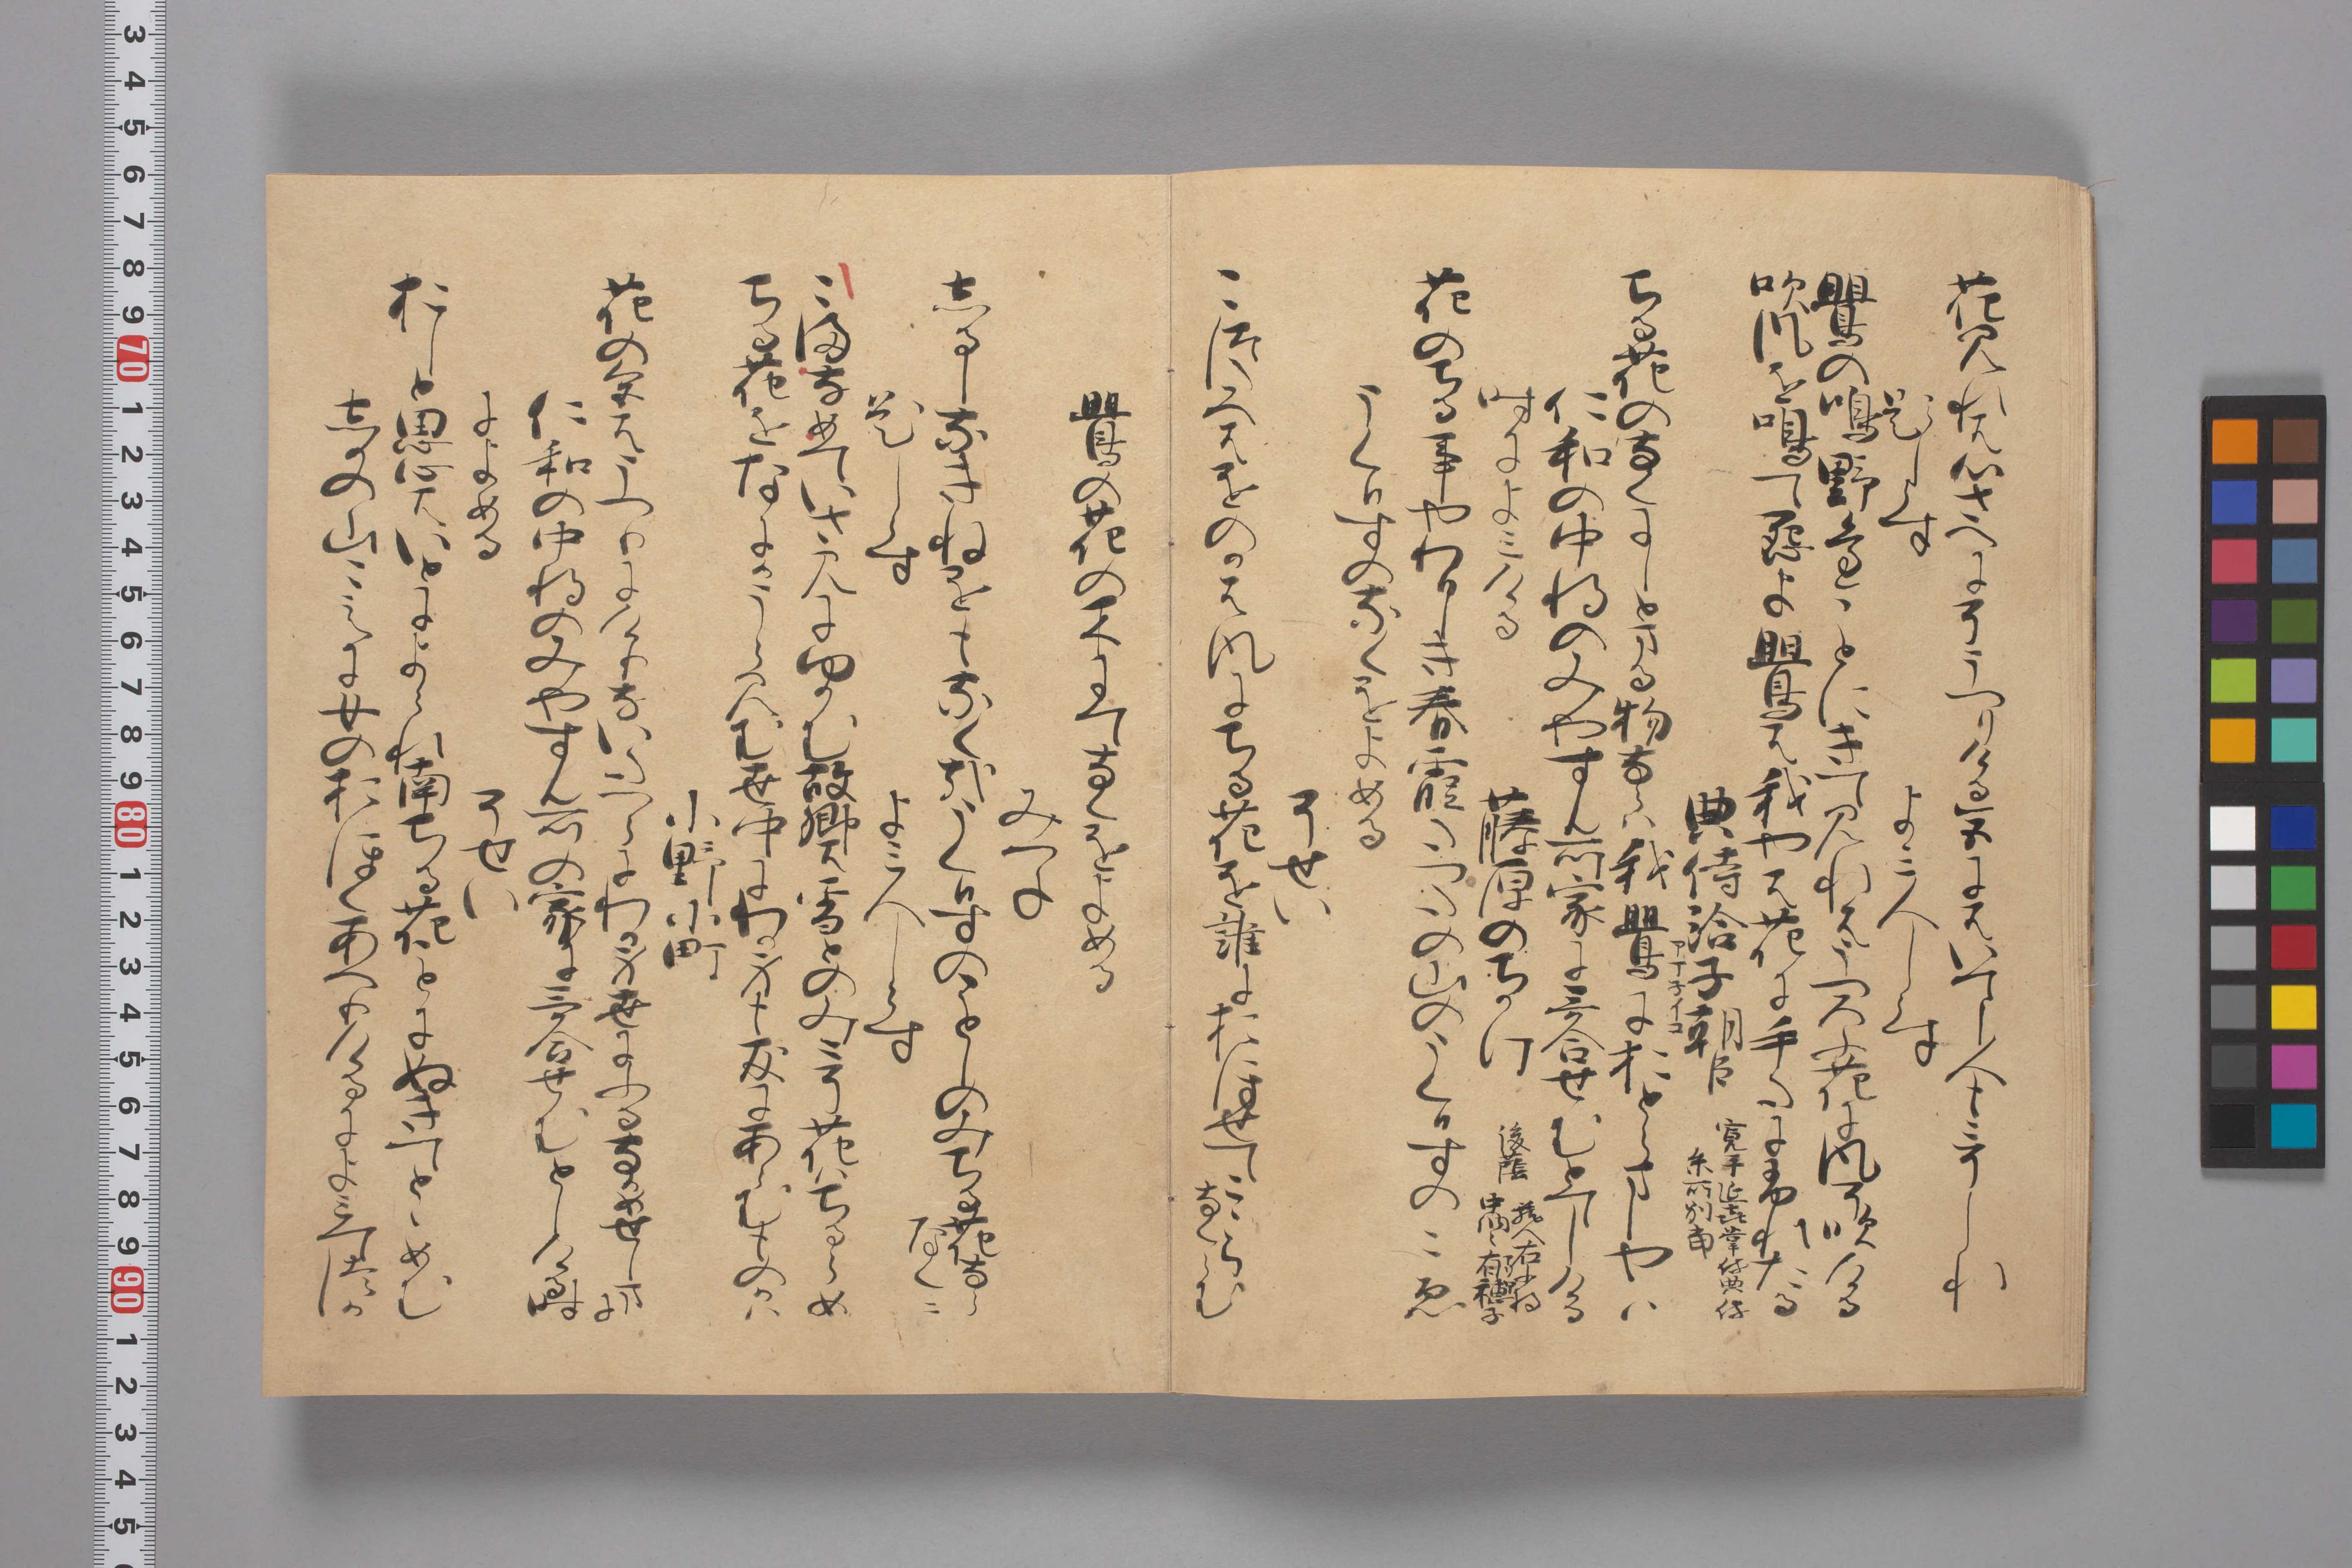 花見れは心さへにそうつりける色にはいてし人もこそしれ
題しらす　よみ人しらす
鶯の鳴野邊ことにきて見れはうつろふ花に風そ吹ける
吹風を鳴て恨よ鶯は我やは花に手たにふれたる
典侍洽子朝臣
ちる花のなくにしとまる物ならは我鶯におとらましやは
仁和の中将のみやすん所家に哥合せむとてしける
時によみける　藤原のちかけ　後蔭
花のちる事やわひしき春霞たつたの山のうくひすのこゑ
うくひすのなくをよめる
そせい
こつたへはをのかは風にちる花を誰におほせてこゝらなくらむ
鶯の花の木にてなくをよめる
みつね
しるしなきねをもなくかなうくひすのことしのみちる花ならなくに
題しらす　よみ人しらす
こまなめていさみにゆかむ故郷は雪とのみこそ花はちるらめ
ちる花をなにかうらみむ世中にわか身も友にあらむものかは
小野小町
花の色はうつりにけりないたつらにわか身世にふるなかめせしまに
仁和の中将のみやすん所の家に哥合せむとしける時に
よめる　そせい
おしと思心はいとによられ南ちる花ことにぬきてとゝめむ
しかの山こえに女のおほくあへりけるによみてつか